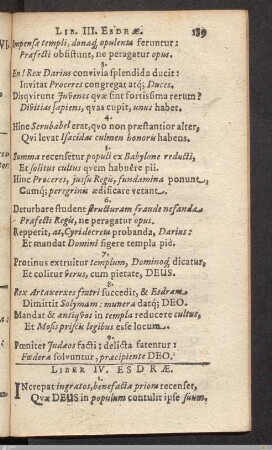 LIB. III. ESDRÆ. 189
Impensæ templi, donaq́, opulenta feruntur:
Præfecti obsistunt, ne peragatur opus.
3.
En! Rex Darius convivia splendida ducit:
Invitat Proceres congregat atq́; Duces.
Disqvirunt Juvenes qvæ sint fortissima rerum?
Divitias sapiens, qvas cupit, unus habet.
4.
Hinc Serubabel erat, qvo non præstantior alter,
Qvi levat Isacidas culmen honoris habens.
5.
Summa recensetur populi ex Babylone reducti,
Et solitus cultus qvem habuêre pii.
Hinc Proceres, jussu Regis, fundamina ponunt,
Cumq́; peregrini ædificare vetant.
6.
Deturbare student structuram fraude nefanda
Præfecti Regis, ne peragatur opus.
Repperit, at, Cyri decreta probanda, Darius:
Et mandat Domini figere templa piè.
7.
Protinus extruitur templum, Dominoq́ dicatur,
Et colitur verus, cum pietate, DEUS.
8.
Rex Artaxerxes fratri succedit, & Esdram
Dimittit Solymam: munera datq́; DEO.
Mandat & antiqvos in templa reducere cultus,
Et Mosis priscis legibus esse locum.
9.
Pœnitet Judæos facti: delicta fatentur:
Fœdera solvuntur, præcipiente DEO.
LIBER IV. ESDRÆ.
1.
INcrepat ingratos, benefacta priora recenset,
Qvæ DEUS in populum contulit ipse suum.